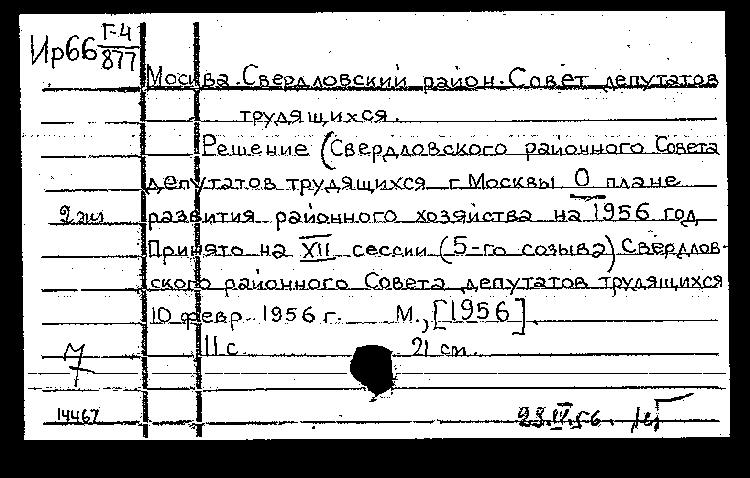 Ир66 Г-4/877
Москва. Свердловский район. Совет депутатов
трудящихся.
Решение (Свердловского районного Совета
депутатов трудящихся г. Москвы О плане
2 экз
развития районного хозяйства на 1956 год
Принято на XII сессии (5-го созыва) Свердлов-
ского районного Совета депутатов трудящихся
10 февр. 1956 г. М., [1956].
11 с. 21 см.
14467
23.IV.56.